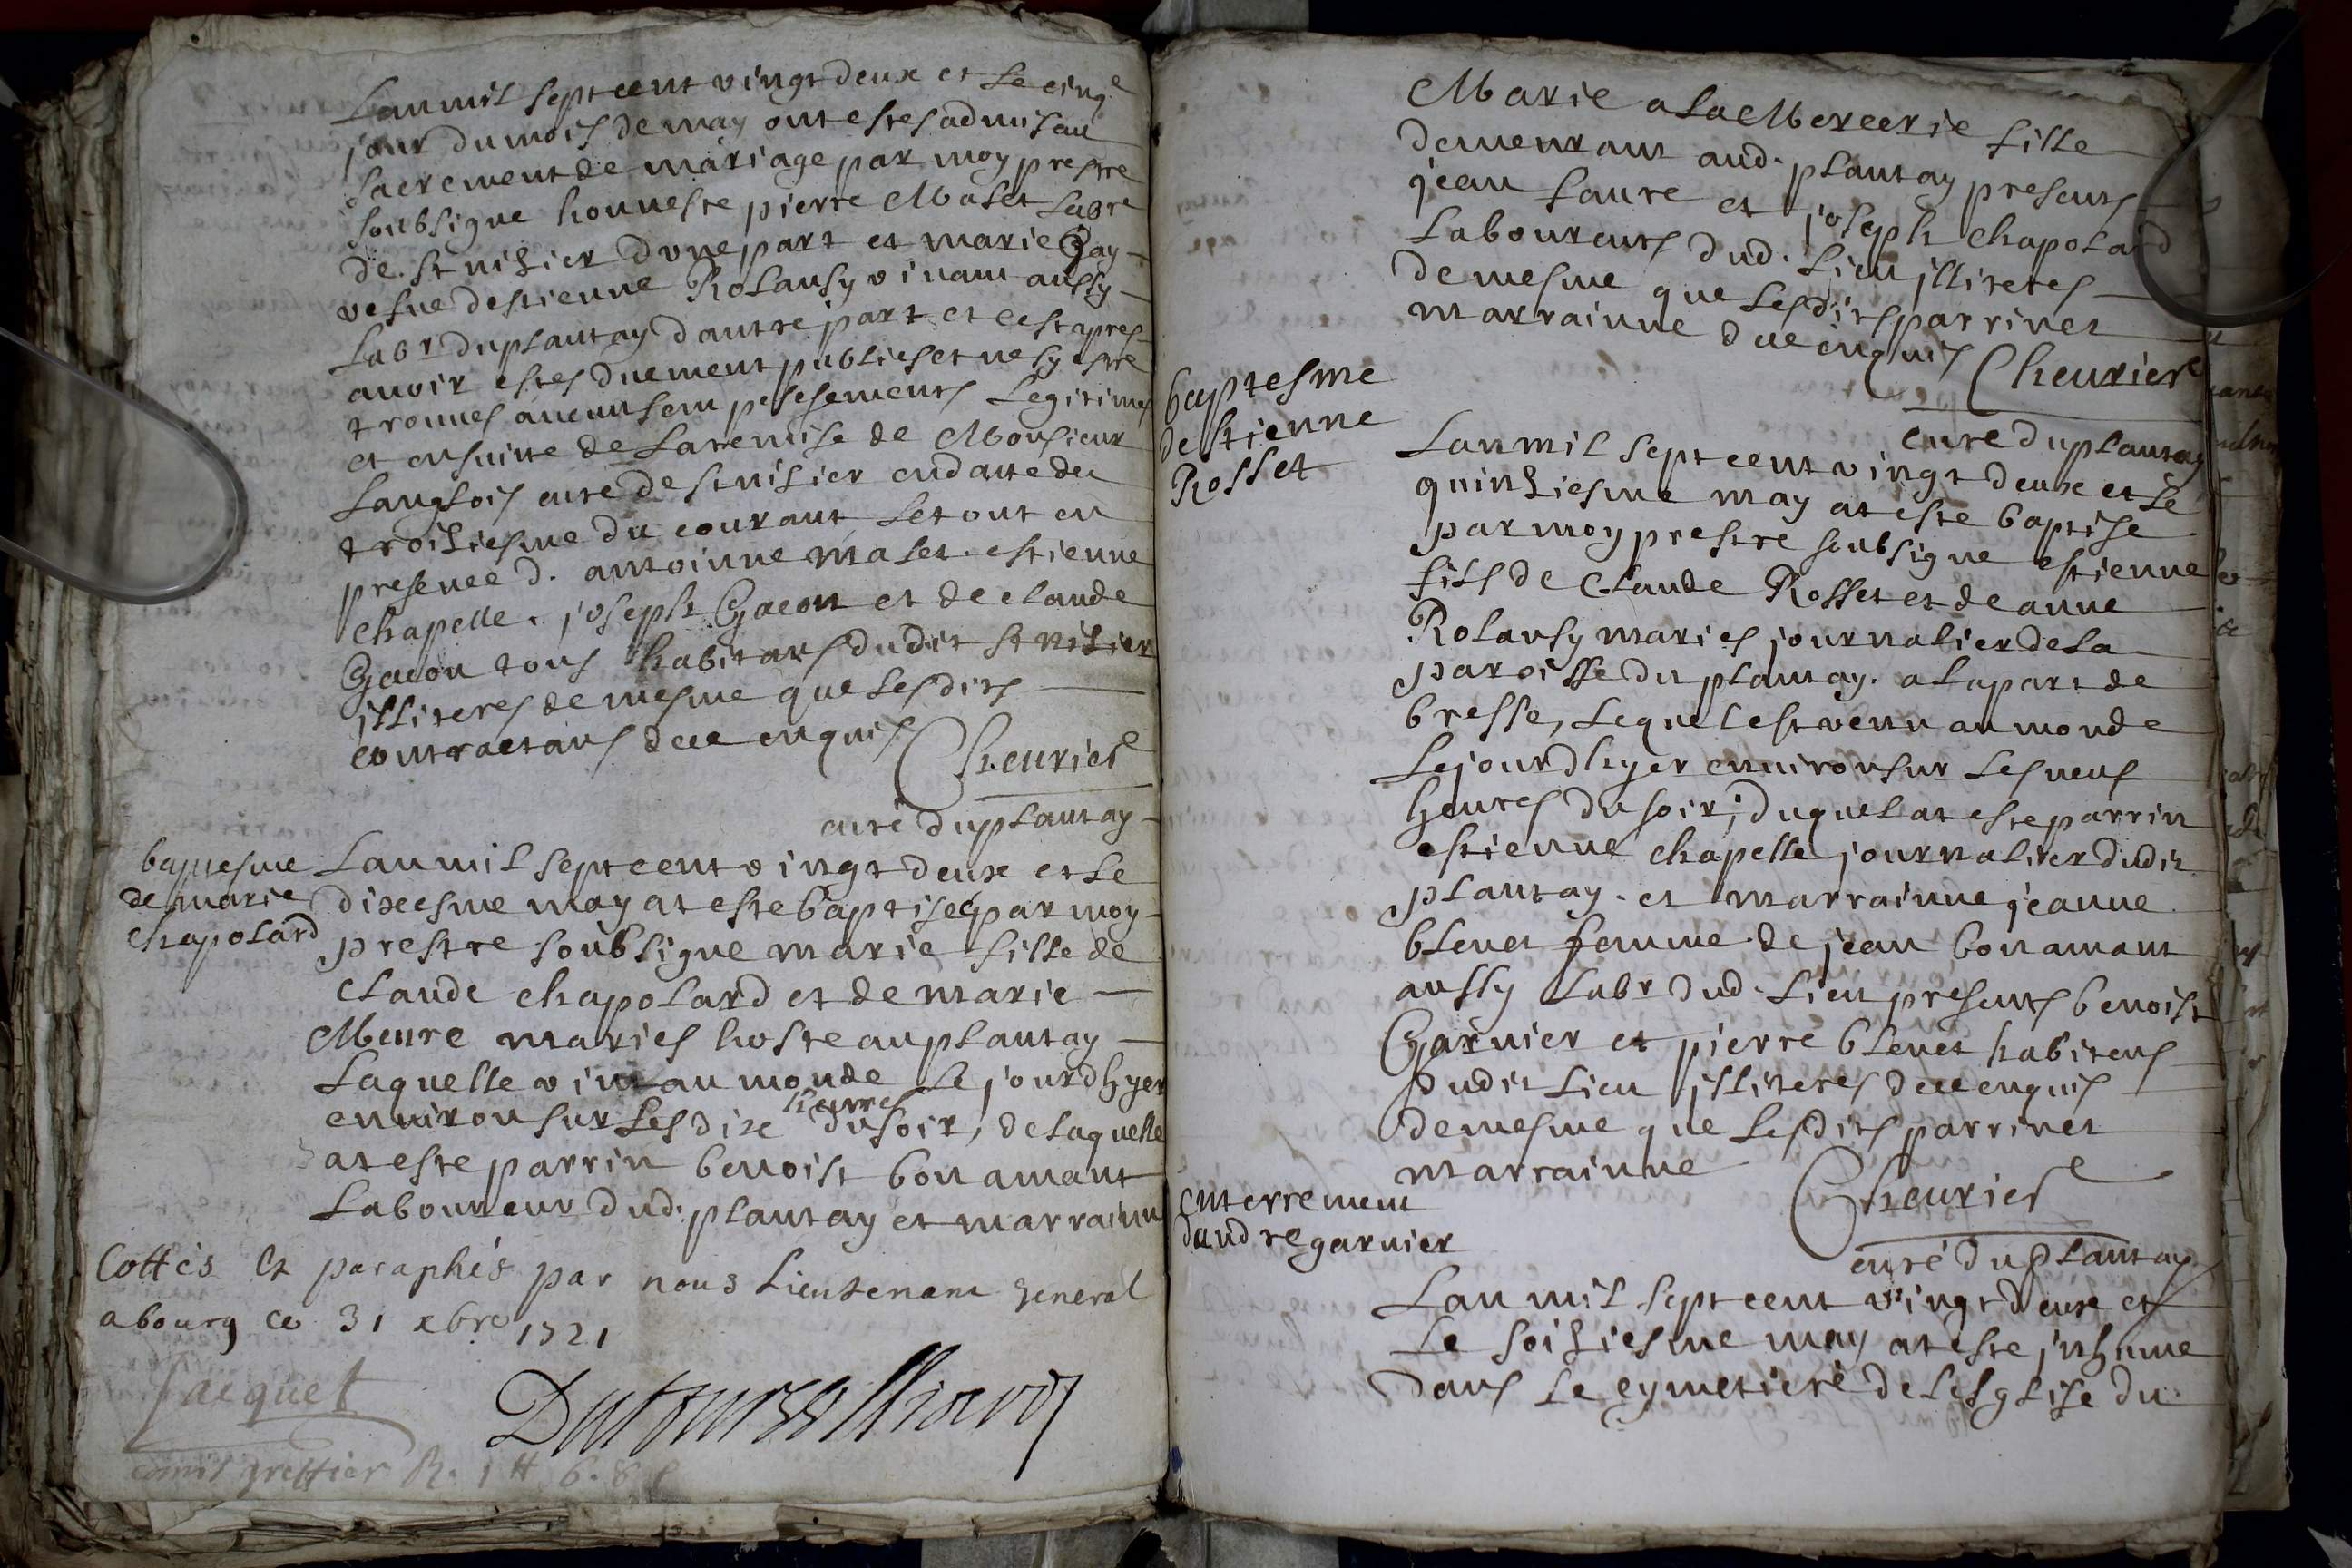 Lan mil sept cent vingt deux et le cinq^e
jour du mois de may ont estes admis au
sacrement de mariage par moy prestre
soubsigne honneste pierre Malet labr
de. st nisier dune part et marie Gay
vefue destienne Rolansy vivant aussy
labr du plantay dautre part et cest apres
auoir estes duement publies et ne sy estre
trouues aucuns empeschements legitimes
et ensuitte de la remise de Monsieur
Langlois cure de st nisier en datte du
troisiesme du courant le tout en
presence d. antoinne malet. estienne
chapelle. joseph Gacon et de claude
Gacon tous habitans dudit st nisier
illiteres de mesme que lesdits
contractans de ce enquis Cheurier
curé du plantay
baptesme
de marie
chapolard
Lan mil sept cent vingt deux et le
dixiesme may at este baptisée par moy
prestre soubsigne marie fille de
claude chapolard et de marie
Meure maries hoste au plantay
Laquelle vint au monde le jourdhyer
environ sur les dix heures du soir, de laquelle
at este parrin benoist bonamant
Laboureur dud. plantay et marrainne
Cottés et paraphés par nous Lieutenant general
a bourg ce 31 xbre 1721
Jacquet
commis greffier R. 1
Marie a la Mercerie fille
demeurant aud. plantay presents
jean faure et joseph chapolard
Laboureurs dud. lieu illiteres
de mesme que lesdits parrin et
marrainne de ce enquis Cheurier
cure du plantay
baptesme
destienne
Rosset
Lan mil sept cent vingt deux et le
quinziesme may at este baptise
par moy prestre soubsigne estienne
fils de Claude Rosset et de anne
Rolansy maries journalier de la
paroisse du plantay. a la part de
bresse, lequel est venu au monde
Le jourdhyer environ sur les neuf
heures du soir, duquel at este parrin
estienne chapelle journalier dudit
plantay. et marrainne jeanne
bleuet femme de jean bonamant
aussy labr dud. lieu presents benoist
Garnier et pierre bleuet habitens
dudit lieu illiteres de ce enquis
de mesme que lesdits parrin et
marrainne Cheurier
curé du plantay
enterrement
dandre garnier
Lan mil sept cent vingt deux et
le soiziesme may at este inhume
dans le cymetiere de lesglise du